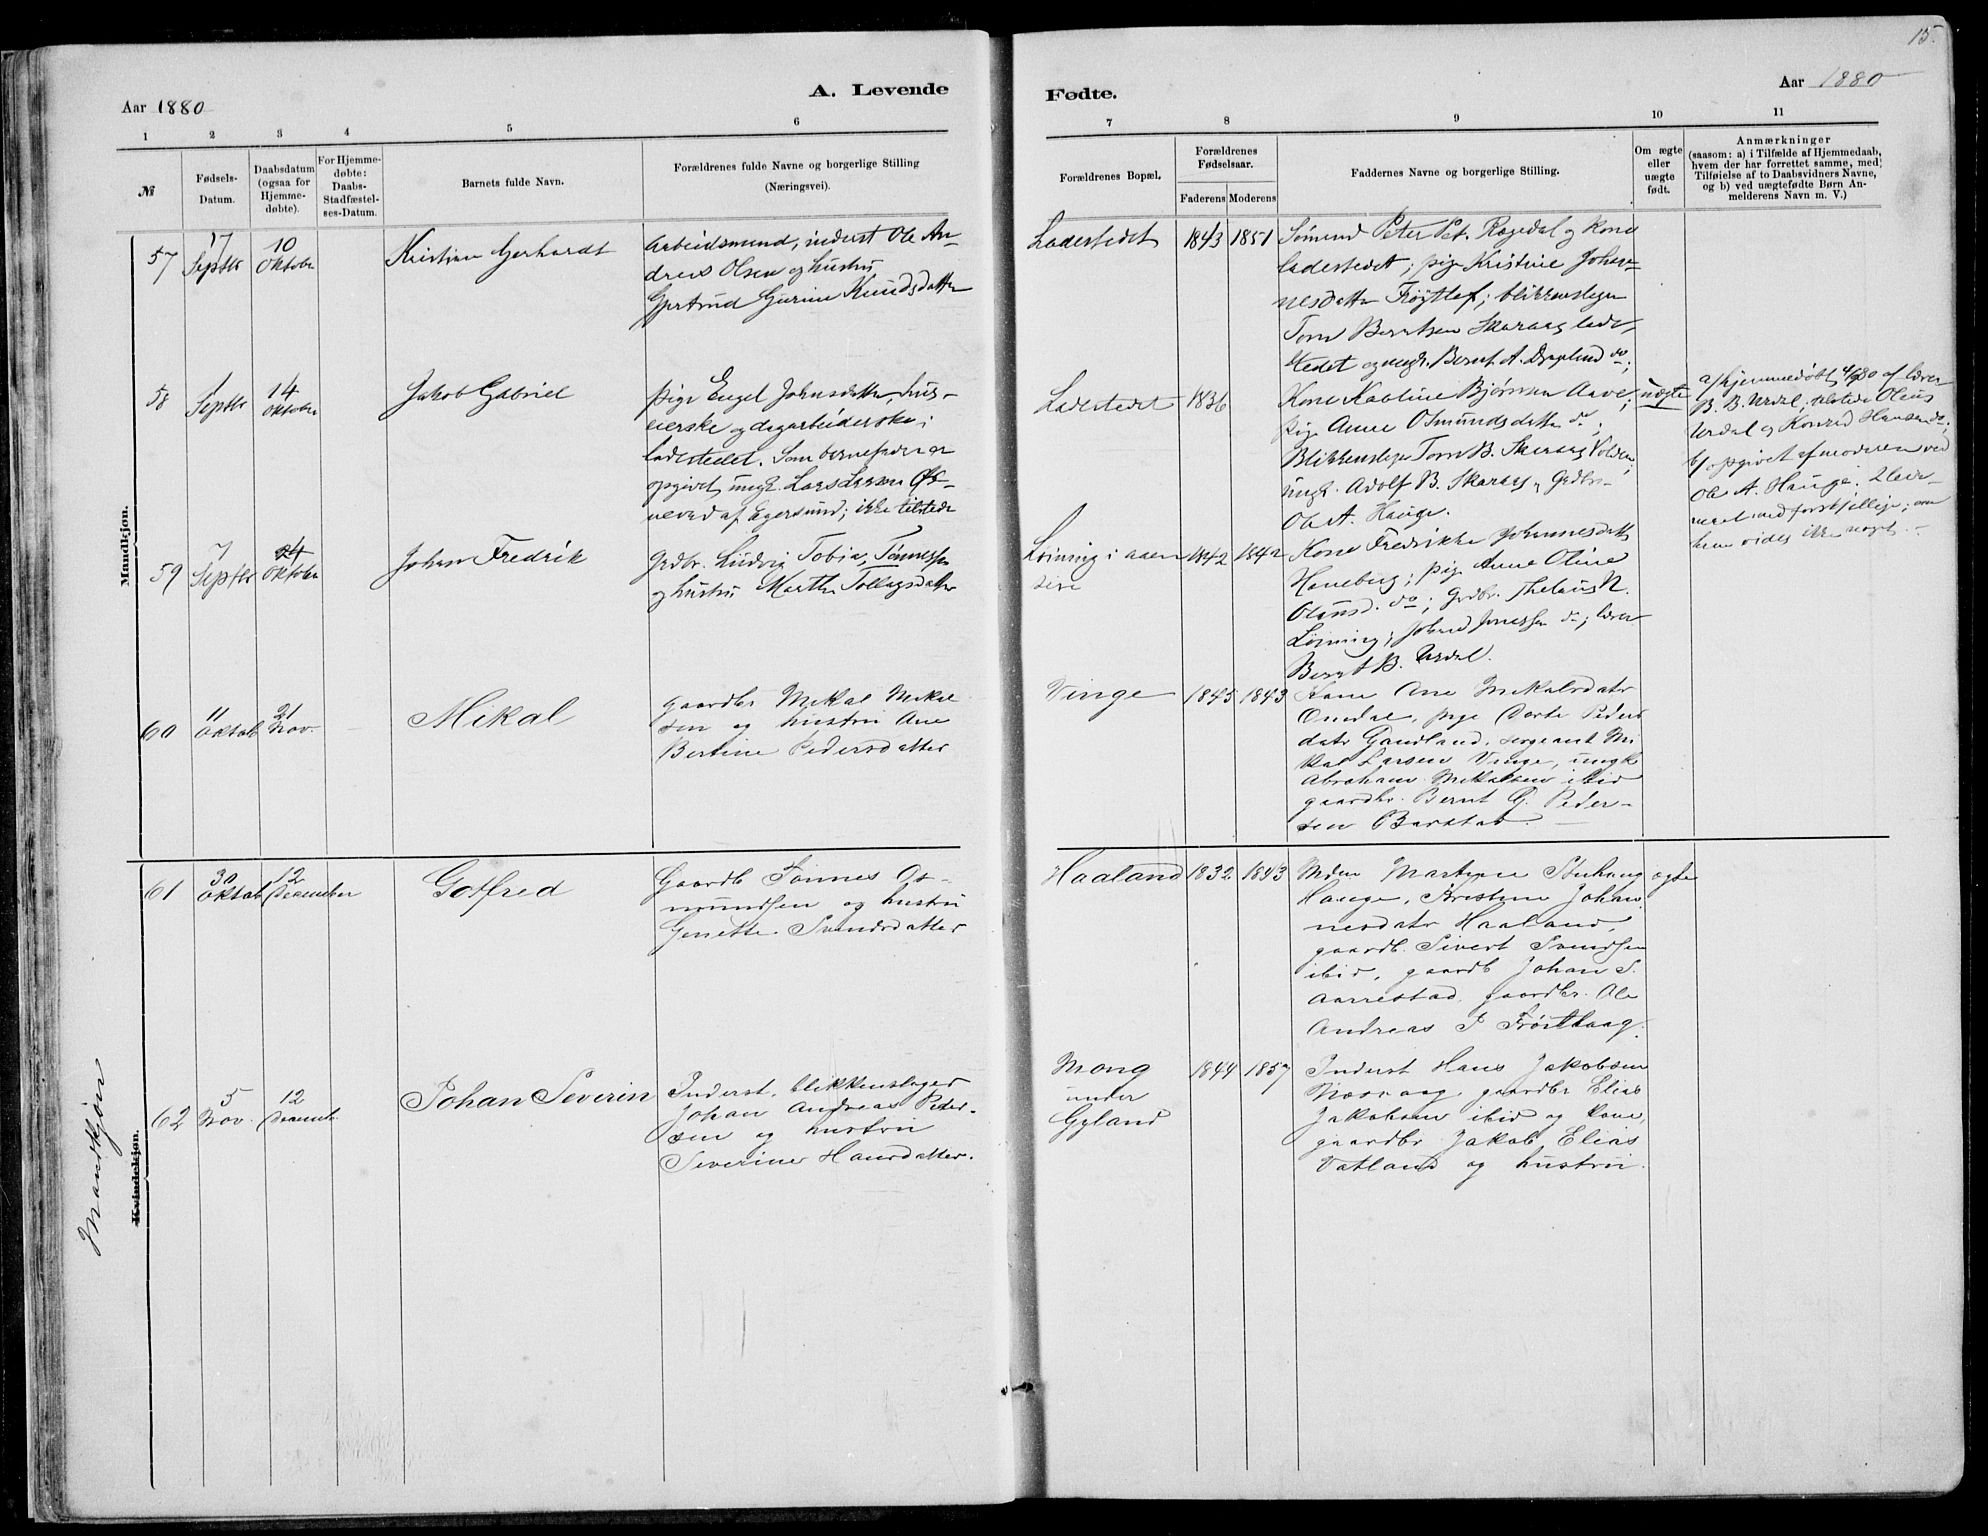 15.
Aar 1880
A. Levende
Fødte.
Aar 1880
1 2 3 4 5 6
7 8 9 10 11
№
Fødsels-
Datum.
Daabsdatum
(ogsaa for
Hjemme-
døbte).
For Hjemme-
døbte:
Daabs-
Stadfæstel-
ses-Datum.
Barnets fulde Navn.
Forældrenes fulde Navne og borgerlige Stilling
(Næringsvei).
Forældrenes Bopæl.
Forældrenes
Fødselsaar.
Faderens
Moderens
Faddernes Navne og borgerlige Stilling.
Om ægte
eller
uægte
født.
Anmærkninger
(saasom: a) i Tilfælde af Hjemmedaab,
hvem der har forrettet samme, med
Tilføielse af to Daabsvidners Navne,
og b) ved uægtefødte Børn An-
melderens Navn m. V.)
Mandkjøn.
57
17
Septbr
10
Oktober
Kristian Gerhardt
Arbeidsmand, inderst Ole An-
dreas Olsen og hustru
Gjertrud Gurine Knudsdatter
Ladestedet
1843
1851
Sømand Peter Pet. Rægedal og kone
ladestedet; pige Kristine Johan-
nesdatter Frøytlog; blikkenslager
Tom Berntsen Skaraas lade-
stedet og ungk. Bernt A. Dypland do.
58
Septbr
14
Oktober
Jakob Gabriel
Pige Engel Johnsdatter, hus-
eierske og dagarbeiderske i
ladestedet. Som barnefader er
opgivet ungk. Lars Larsen
af Egersund; ikke tilstede
Ladestedet
1836
Kone Karline Bjørnsen Aave;
pige Anne Osmundsdatter do;
Blikkenslager Tom B. Skaraas Volden;
ungk. Adolf B. Skaraas, Grdbr.
Ole A. Hauge.
uægte
a/ hjemmedøbt 4/9 80 af lærer
B. B. Urdal; tilstede Olaus
Urdal og Konrad Hansen do;
b/ opgivet af moderen ved
Ole A. Hauge. 2 leier-
maal med forskjellige; om
ham vides ikke noget.
59
7
Septbr
24
Oktober
Johan Fredrik
Grdbr. Ludvig Tobias Tønnessen
og hustru Marthe Tollagsdatter
Løining i Aaen
sire
1842
1842
Kone Fredrikke Johannesdatt
Haneberg; pige Anne Oline
Olausd. do; Grdbr. N.
Løining; Jonassen do; lærer
Bernt B. Urdal.
60
11
Oktob
21
Nov.
Mikal
Gaardbr Mekal Mekal
sen og hustru Ane
Bertine Pedersdatter
Vinge
1845
1843
Kone Ane Mekalsdatr
Omdal, pige Dorte Peders
datr Gandland, sergeant Mi
kal Larsen Vinge, ungk
Abraham Mekalsen ibid
gaardbr. Bernt G. Peder-
sen Barstad.
61
30
Oktob
12
December
Gotfred
Gaardb Tønnes Os-
mundsen og hustru
Genette Svendsdatter
Haaland
1832
1843
Martine
Hauge, Kristine Johan
nesdatr Haaland,
gaardb. Sivert Svendsen
ibid, gaardb Johan S.
Aarrestad, gaardbr. Ole
Andreas P Frøitlaag.
ægte
Mandkjøn
Kvindekjøn.
62
5
Nov.
12
Decemb.
Johan Severin
Inderst, blikkenslager
Johan Andreas Peder-
sen og hustru
Severine Hansdatter.
Mong
under
Gyland
1844
1857
Inderst Hans Jakobsen
gaardbr Elias
Jakobsen ibid og kone,
gaardbr Jakob Elias
Vatland og hustru.